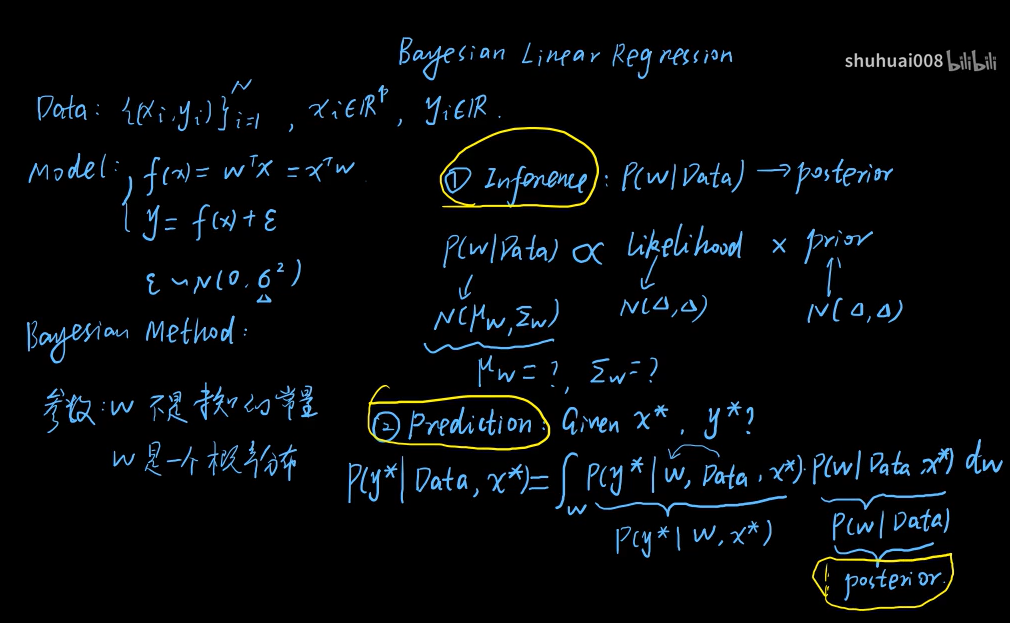 Bayesian Linear Regression
shuhuai008 bilibili
Data: {(xᵢ,yᵢ)}ᴺᵢ₌₁, xᵢ∈ℝᵖ, yᵢ∈ℝ.
Model: { f(x) = wᵀx = xᵀw
y = f(x) + ε
ε ~ N(0, σ²)
△
Bayesian Method:
参数: w 不是未知的常量
w 是一个概率分布
① Inference: P(w|Data) → posterior
P(w|Data) ∝ likelihood × prior
N(μw, Σw) N(△,△) N(△,△)
μw = ?, Σw = ?
② Prediction: Given x*, y*?
P(y*|Data, x*) = ∫w P(y*|w, Data, x*)·P(w|Data, x*) dw
P(y*|w, x*) P(w|Data)
posterior.